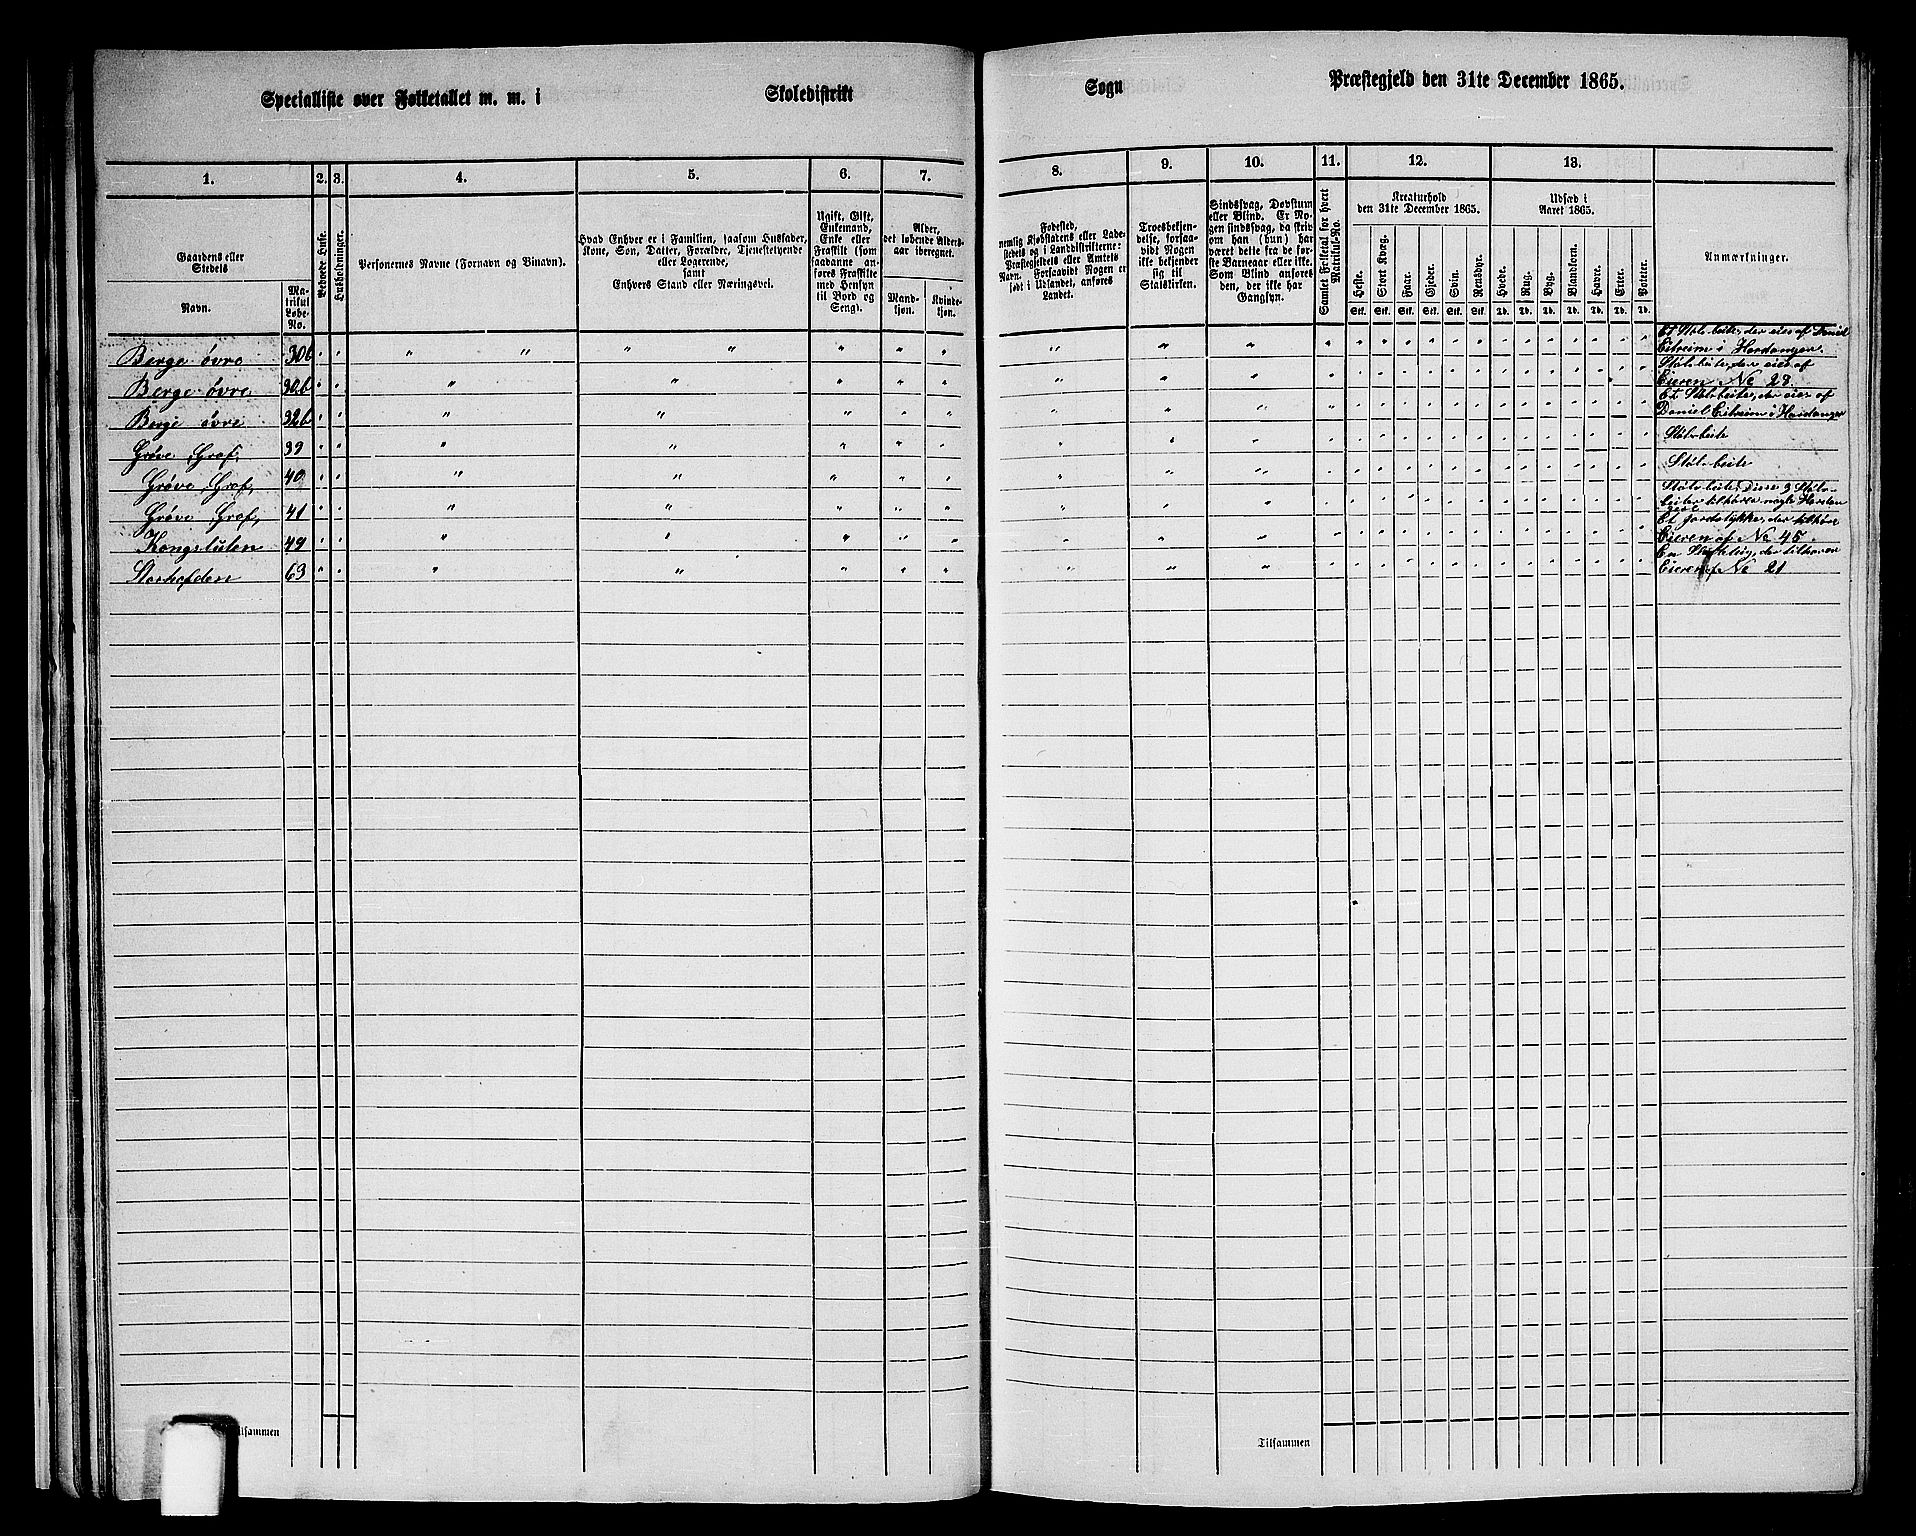 Specialliste over Folketallet m. m. i Skoledistrikt Sogn Præstegjeld den 31te December 1865.
1. 2. 3. 4. 5. 6. 7. 8. 9. 10. 11. 12. 13.
Gaardens eller
Stedets
Navn.
Ma-
trikul
Løbe-
No.
Beboede Huse.
Husholdninger.
Personernes Navne (Fornavn og Binavn).
Hvad Enhver er i Familien, saasom Husfader,
Kone, Søn, Datter, Forældre, Tjenestetyende
eller Logerende,
samt
Enhvers Stand eller Næringsvei.
Ugift, Gift,
Enkemand,
Enke eller
Fraskilt (som
saadanne an-
føres Fraskilte
med Hensyn
til Bord og
Seng).
Alder,
det løbende Alders-
aar iberegnet.
Mand-
kjøn.
Kvinde-
kjøn.
Fødested,
nemlig Kjøbstadens eller Lade-
stedets og i Landdistrikterne:
Præstegjeldets eller Amtets
Navn. Forsaavidt Nogen er
født i Udlandet, anføres
Landet.
Troesbekjen-
delse, forsaa-
vidt Nogen
ikke bekjender
sig til
Statskirken.
Sindssvag, Døvstum
eller Blind. Er No-
gen sindssvag, da skriv
om han (hun) har
været dette fra de før-
ste Barneaar eller ikke.
Som Blind anføres
den, der ikke har
Gangsyn.
Samlet Folketal for hvert
Matrikul-No.
Kreaturhold
den 31te December 1865.
Heste. Stort Kvæg. Faar. Gjeder. Svin. Rensdyr.
Stk. Stk. Stk. Stk. Stk. Stk.
Udsæd i
Aaret 1865.
Hvede. Rug. Byg. Blandkorn. Havre. Erter. Poteter.
Td. Td. Td. Td. Td. Td. Td.
Anmærkninger.
Berge øvre 30b " " " " " " " " " " " " Et Støl-beite, der eies af Daniel
Eitreim i Hardanger.
Berge øvre 30b " " " " " " " " " Støl-beite, der eies af
Eieren No 28.
Berge øvre 32b " " " " " " " " " Et Støl-beite, der eies af
Daniel Eitreim i Hardanger
Grøve Graf, 39 " " " " " " " " " Støl-beite
Grøve Graf, 40 " " " " " " " " " Støl-beite
Grøve Graf, 41 " " " " " " " " " Støl-beite, Disse 3 Støl-
beiter tilhøre nogle
Kongstulen 49 " " " " " " " " " Et Jordstykke, der tilhører
Eieren af No 45.
63 " " " " " " " " " En der tilhører
Eieren af No 21
Tilsammen
Tilsammen